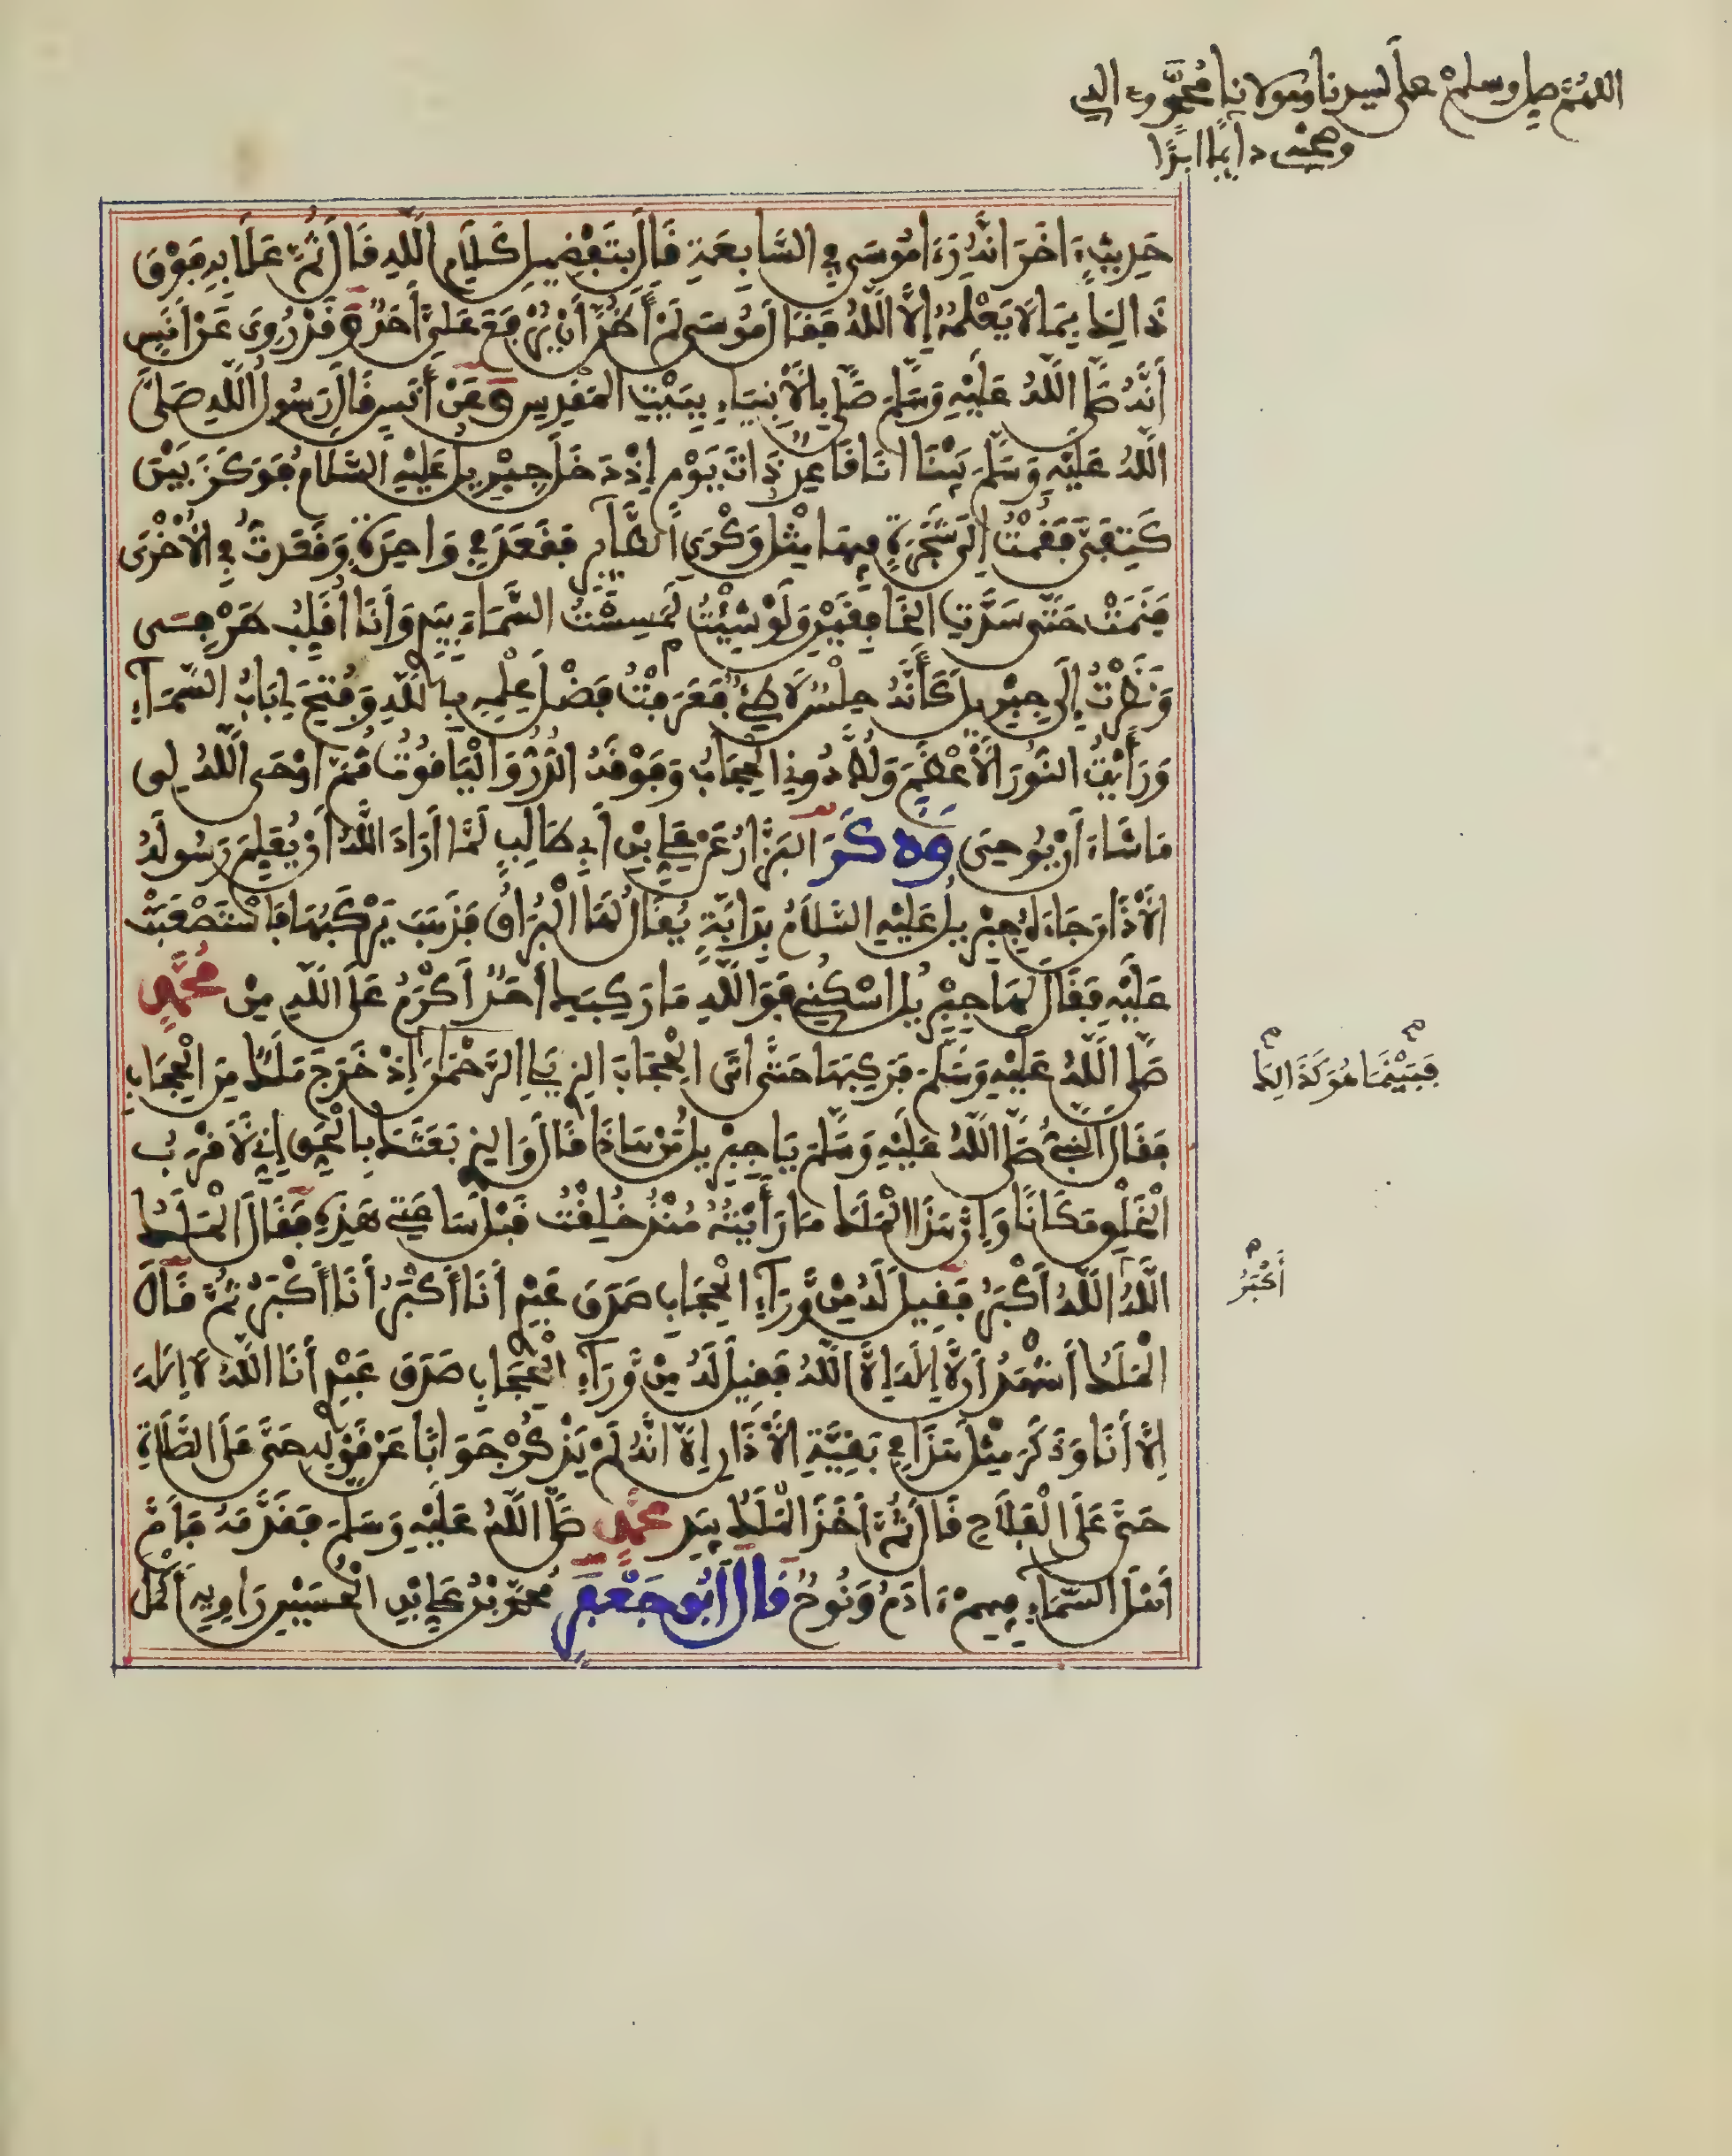 اللهم صل وسلم على سيدنا ومولانا محمد وءاله
وصحبه دايما ابدا
حَدِيثٍ ءَاخَرَ انَّهُ رَءَا مُوسَى فِي السَّابِعَةِ قَالَ بِتَفْضِيلِ كَلَامِ اللَّهِ قَالَ ثُمَّ عَلَا بِهِ فَوْقَ
ذَالِكَ بِمَا لَا يَعْلَمُهُ إِلَّا اللَّهُ فَقَالَ مُوسَى لَمْ أَظُنَّ أَنْ يُرْفَعَ عَلَيَّ أَحَدٌ وَقَدْ رُوِيَ عَنْ أَنَسٍ
أَنَّهُ صَلَّى اللَّهُ عَلَيْهِ وَسَلَّمَ صَلَّى بِالْأَنْبِيَاءِ بِبَيْتِ الْمَقْدِسِ وَعَنْ أَنَسٍ قَالَ رَسُولُ اللَّهِ صَلَّى
اللَّهُ عَلَيْهِ وَسَلَّمَ بَيْنَا انَا قَاعِدٌ ذَاتَ يَوْمٍ إِذْ دَخَلَ جِبْرِيلُ عَلَيْهِ السَّلَامُ فَوَكَزَ بَيْنَ
كَتِفَيَّ فَقُمْتُ إِلَى شَجَرَةٍ فِيهَا مِثْلُ وَكْرَيِ الطَّايِرِ فَقَعَدَ فِي وَاحِدَةٍ وَقَعَدتُّ فِي الْأُخْرَى
فَنَمَتْ حَتَّى سَدَّتِ الْخَافِقَيْنِ وَلَوْ شِيْتُ لَمَسِسْتُ السَّمَاءَ بِيَدِي وَأَنَا أُقَلِّبُ طَرْفِي
وَنَظَرْتُ إِلَى جِبْرِيلَ كَأَنَّهُ حِلْسٌ لَاطِئٌ فَعَرَفْتُ فَضْلَ عِلْمِهِ بِاللَّهِ وَفُتِحَ لِي بَابُ السَّمَاءِ
وَرَأَيْتُ النُّورَ الْأَعْظَمَ وَلُطَّ دُونِي الْحِجَابُ وَفَوْقَهُ الدُّرُّ وَالْيَاقُوتُ ثُمَّ أَوْحَى اللَّهُ لِي
مَا شَاءَ أَنْ يُوحِيَ وَذَكَرَ الْبَزَّارُ عَنْ عَلِيِّ بْنِ أَبِي طَالِبٍ لَمَّا أَرَادَ اللَّهُ أَنْ يُعَلِّمَ رَسُولَهُ
الْأَذَانَ جَاءَهُ جِبْرِيلُ عَلَيْهِ السَّلَامُ بِدَابَّةٍ يُقَالُ لَهَا الْبُرَاقُ فَذَهَبَ يَرْكَبُهَا فَاسْتَصْعَبَتْ
عَلَيْهِ فَقَالَ لَهَا جِبْرِيلُ اسْكُنِي فَوَاللَّهِ مَا رَكِبَكِ أَحَدٌ أَكْرَمُ عَلَى اللَّهِ مِنْ مُحَمَّدٍ
صَلَّى اللَّهُ عَلَيْهِ وَسَلَّمَ فَرَكِبَهَا حَتَّى أَتَى الْحِجَابَ الذِي يَلِي الرَّحْمَانَ إِذْ خَرَجَ مَلَكٌ مِنَ الْحِجَابِ
فَبَيْنَمَا هُوَ كَذَالِكَ
فَقَالَ النَّبِيُّ صَلَّى اللَّهُ عَلَيْهِ وَسَلَّمَ يَا جِبْرِيلُ مَنْ هَاذَا قَالَ وَالذِي بَعَثَكَ بِالْحَقِّ إِنِّي لَأَقْرَبُ
الْخَلْقِ مَكَانًا وَإِنَّ هَذَا الْمَلَكَ مَا رَأَيْتُهُ مُنْذُ خُلِقْتُ قَبْلَ سَاعَتِي هَذِهِ فَقَالَ الْمَلَكُ
اللَّهُ أَكْبَرُ اللَّهُ أَكْبَرُ فَقِيلَ لَهُ مِنْ وَّرَاءِ الْحِجَابِ صَدَقَ عَبْدِي أَنَا أَكْبَرُ أَنَا أَكْبَرُ ثُمَّ قَالَ
الْمَلَكُ أَشْهَدُ أَن لَّا إِلَهَ إِلَّا اللَّهُ فَقِيلَ لَهُ مِنْ وَّرَاءِ الْحِجَابِ صَدَقَ عَبْدِي أَنَا اللَّهُ لَا إِلَهَ
إِلَّا أَنَا وَذَكَرَ مِثْلَ هَذَا فِي بَقِيَّةِ الْأَذَانِ إِلَّا انَّهُ لَمْ يَذْكُرْ جَوَابًا عَنْ قَوْلِهِ حَيَّ عَلَى الصَّلَاةِ
حَيَّ عَلَى الْفَلَاحِ قَالَ ثُمَّ أَخَذَ الْمَلَكُ بِيَدِ مُحَمَّدٍ صَلَّى اللَّهُ عَلَيْهِ وَسَلَّمَ فَقَدَّمَهُ فَأَمَّ
أَهْلَ السَّمَاءِ فِيهِمْ ءَادَمُ وَنُوحٌ قَالَ أَبُو جَعْفَرٍ مُحَمَّدُ بْنُ عَلِيِّ بْنِ الْحُسَيْنِ رَاوِيهِ أَكْمَلَ